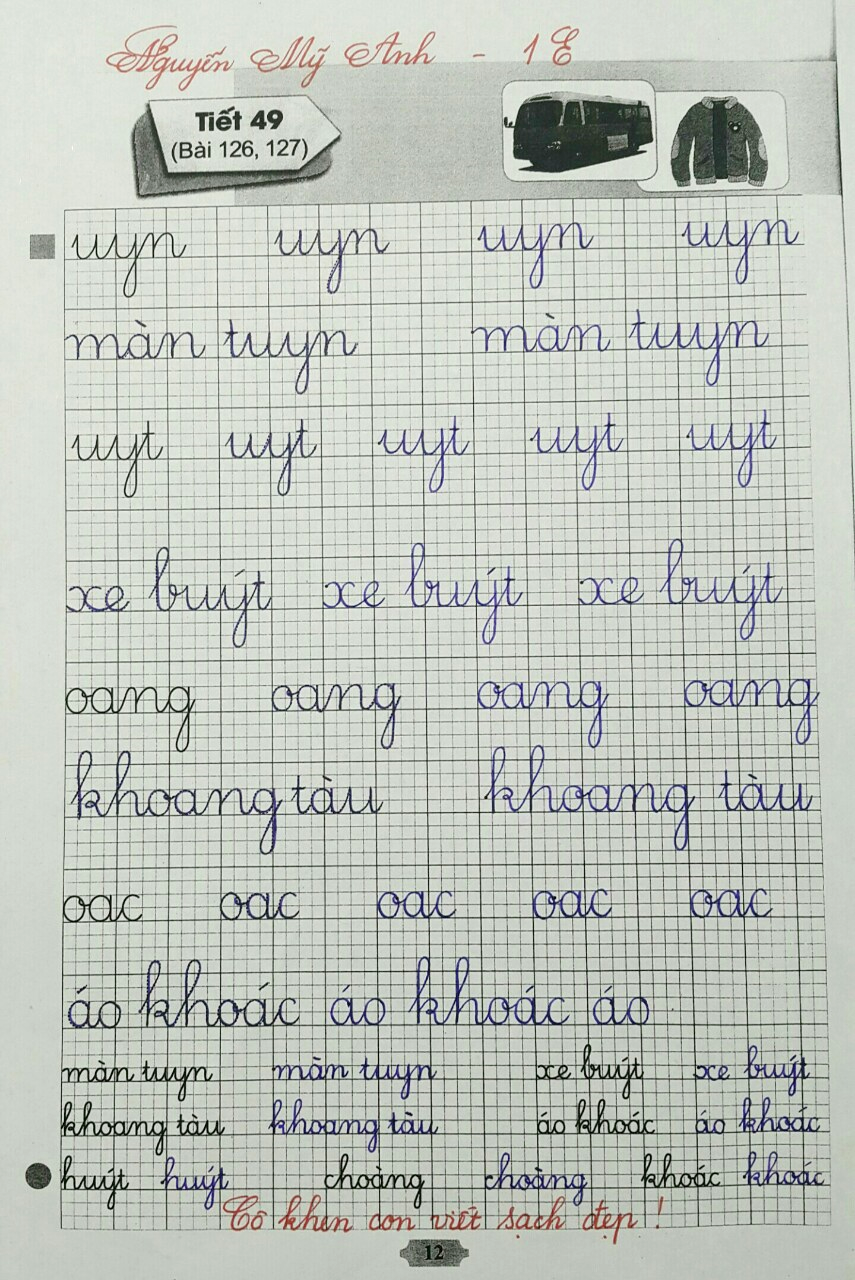 Nguyễn Mỹ Anh - 1E
Tiết 49
(Bài 126, 127)
uyn uyn uyn uyn
màn tuyn màn tuyn
uyt uyt uyt uyt uyt
xe buýt xe buýt xe buýt
oang oang oang oang
khoang tàu khoang tàu
oac oac oac oac oac
áo khoác áo khoác áo
màn tuyn màn tuyn xe buýt xe buýt
khoang tàu khoang tàu áo khoác áo khoác
huýt huýt choàng choàng khoác khoác
Cô khen con viết sạch đẹp !
12